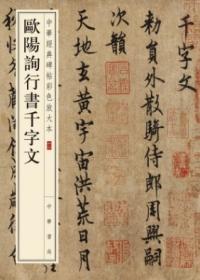 中華經典碑帖彩色放大本
歐陽詢行書千字文
中華書局
千字文
敕員外散騎侍郎周興嗣
次韻
天地玄黃宇宙洪荒日月